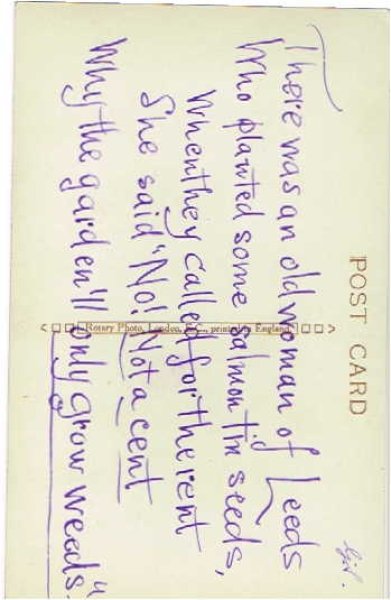 POST CARD
There was an old woman of Leeds
Who planted some salmon tin seeds,
When they called for the rent
She said "No! Not a cent
Why the garden'll only grow weeds."
Rotary Photo, London, E.C., printed in England.